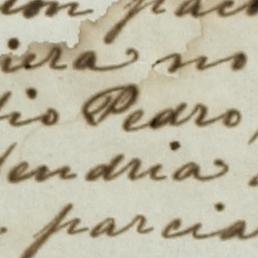 ion pac
iera no
dio Pedro,
dendria
parcia